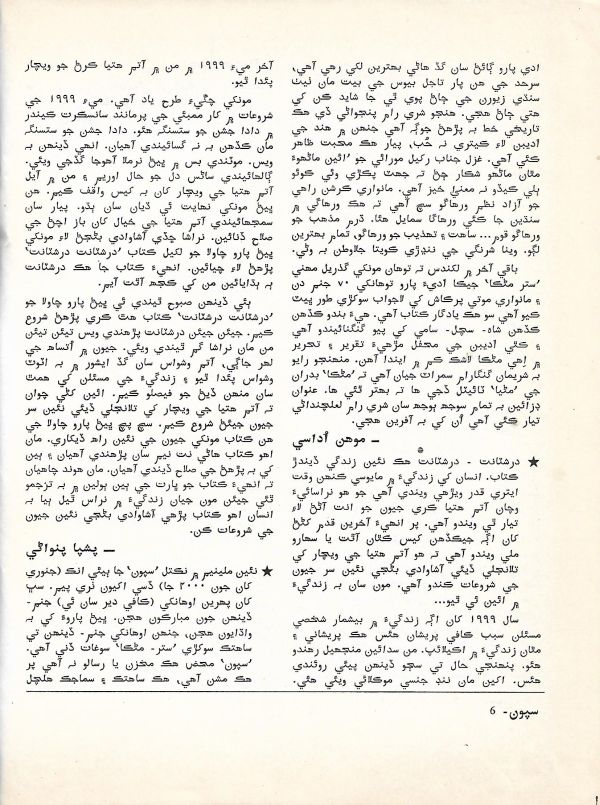 ادي پارو ڳائڻ سان گڏ هاڻي بهترين لکي رهي آهي،
سرحد جي هن پار تاجل بيوس جي بيت مان نيٺ
سنڌي زيورن جي ڄاڻ پوي ٿي جا شايد ڪن کي
هتي ڄاڻ هجي. هنجو شري رام پنجواڻي ڏي هڪ
تاريخي خط به پڙهڻ جوڳه آهي جنهن ۾ هند جي
اديبن لاءِ ڪيتري نه حُب، پيار هڪ محبت ظاهر
ڪئي آهي. غزل جناب رڪيل موراڻي جو ’ائين ماڻهوءَ
مٿان ماڻهو شڪار چڻ ته جهٽ پڪڙي وٺي ڪوئو
ٻلي کيڏو نه معنيٰ خيز آهي. مانواري ڪرشن راهي
جو آزاد نظم ورهاڱو سچ آهي ته هڪ ورهاڱي ۾
سنڌين جا ڪئي ورهاڱا سمايل هئا. ڌرم مذهب جو
ورهاڱو قوم... ساهت ۽ تهذيب جو ورهاڱو، تمام بهترين
لڳو. وينا شرنگي جي ننڍڙي ڪويتا جلاوطن به وڻي.
باقي آخر ۾ لکندس ته توهان مونکي گذريل مهني
’ستر مٽڪا‘ جيڪا ادي پارو توهانکي ٧٠ جنم دن
۽ مانواري موتي پرڪاش کي لاجواب سوکڙي طور ڀيٽ
ڪيو آهي سو هڪ يادگار ڪتاب آهي. هيءَ بندو ڪڏهن
ڪڏهن شاه- سچل- سامي کي پيو گنگنائيندو آهي
۽ ڪٿي اديبن جي محفل مڙهيءَ تقرير ۽ تحرير
۾ اِهي مٽڪا لاشڪ ڪم ۾ ايندا آهن. منهنجو رايو
به شريمان گنگارام سمراٽ جيان آهي ته ’مٽڪا‘ بدران
جي ’مڻيا‘ ٽائيٽل ڏجي ها ته بهتر ٿئي ها. عنوان
ڊزائين به تمام سوجهه ٻوجهه سان شري رام لعلچنداڻي
تيار ڪئي آهي اُن کي به آفرين هجي.
ـ موهن اُداسي
★ درشٽانت - درشٽانت هڪ نئين زندگي ڏيندڙ
ڪتاب. انسان کي زندگيءَ ۾ مايوسي ڪنهن وقت
ايتري قدر ويڙهي ويندي آهي جو هو نراسائيءَ
وچان آتم هتيا ڪري جيون جو انت آڻڻ لاءِ
تيار ٿي ويندو آهي. پر انهيءَ آخرين قدم کڻڻ
کان اڳه جيڪڏهن کيس ڪٿان آٿت يا سهارو
ملي ويندو آهي ته هو آتم هتيا جي ويچار کي
تلانجلي ڏيئي آشاوادي بڻجي نئين سر جيون
جي شروعات ڪندو آهي. مون سان به زندگيءَ
۾ ائين ئي ٿيو...
سال ١٩٩٩ کان اڳه زندگيءَ ۾ بيشمار شخصي
مسئلن سبب ڪافي پريشان هئس هڪ پريشاني ۽
مٿان زندگيءَ ۾ اڪيلائپ. من سدائين منجهيل رهندو
هئو. پنهنجي حال تي سڄو ڏينهن پيئي روئندي
هئس. اکين مان ننڊ جنسي موڪلائي ويئي هئي.
آخر ميءَ ١٩٩٩ ۾ من ۾ آتم هتيا ڪرڻ جو ويچار
پئدا ٿيو.
مونکي چڱيءَ طرح ياد آهي. ميءَ ١٩٩٩ جي
شروعات ۾ کار ممبئي جي پرمانند سانسڪرت ڪيندر
۾ دادا جشن جو ستسنگ هئو. دادا جشن جو ستسنگ
مان ڪڏهن به نه گسائيندي آهيان. انهي ڏينهن به
ويس. موٽندي بس ۾ ڀيڻ نرملا آهوجا گڏجي ويئي.
ڳالهائيندي ساڻس دل جو حال اوريم ۽ من ۾ آيل
آتم هتيا جي ويچار کان به کيس واقف ڪيم. هن
ڀيڻ مونکي نهايت ئي ڌيان سان ٻڌو. پيار سان
سمجهائيندي آتم هتيا جي خيال کان باز اچڻ جي
صلاح ڏنائين. نراشا ڇڏي آشاوادي بڻجڻ لاءِ مونکي
ڀيڻ پارو چاولا جو لکيل ڪتاب ’درشٽانت درشٽانت‘
پڙهڻ لاءِ چيائين. انهيءَ ڪتاب جا هڪ درشٽانت
به ٻڌايائين من کي ڪجهه آٿت آيم.
ٻئي ڏينهن صبوح ٿيندي ئي ڀيڻ پارو چاولا جو
’درشٽانت درشٽانت‘ ڪتاب هٿ ڪري پڙهڻ شروع
ڪيم. جيئن جيئن درشٽانت پڙهندي ويس تيئن تيئن
من مان نراشا گم ٿيندي ويئي. جيون ۾ اُتساه جي
لهر جاڳي، آتم وشواس سان گڏ ايشور ۾ به اٽوٽ
وشواس پئدا ٿيو ۽ زندگيءَ جي مسئلن کي همٿ
سان منهن ڏيڻ جو فيصلو ڪيم. ائين کڻي چوان
ته آتم هتيا جي ويچار کي تلانجلي ڏيئي نئين سر
جيون جيئڻ شروع ڪيم. سچ پچ ڀيڻ پارو چاولا جي
هن ڪتاب مونکي جيون جي نئين راه ڏيکاري. مان
اهو ڪتاب هاڻي نت نيم سان پڙهندي آهيان ۽ ٻين
کي به پڙهڻ جي صلاح ڏيندي آهيان. مان هوند چاهيان
ته انهيءَ ڪتاب جو ڀارت جي ٻين ٻولين ۾ به ترجمو
ٿئي جيئن مون جيان زندگيءَ ۾ نراس ٿيل ٻيا به
انسان اهو ڪتاب پڙهي آشاوادي بڻجي نئين جيون
جي شروعات ڪن.
ـ پشپا پنواڻي
★ نئين ملينيم ۾ نڪتل ’سپون‘ جا ٻيئي انڪ (جنوري
کان جون ٢٠٠٠ جا) ڏسي اکيون ٺري پيم. سڀ
کان پهرين اوهانکي (ڪافي دير سان ئي) جنم-
ڏينهن جون مبارڪون هجن. ڀيڻ پاروءَ کي به
واڌايون هجن، جنهن اوهانکي جنم- ڏينهن تي
ساهتڪ سوکڙي ’ستر- مٽڪا‘ سوغات ڏني آهي.
’سپون‘ محض هڪ مخزن يا رسالو نه آهي پر
هڪ مشن آهي، هڪ ساهتڪ ۽ سماجڪ هلچل
سپون - 6